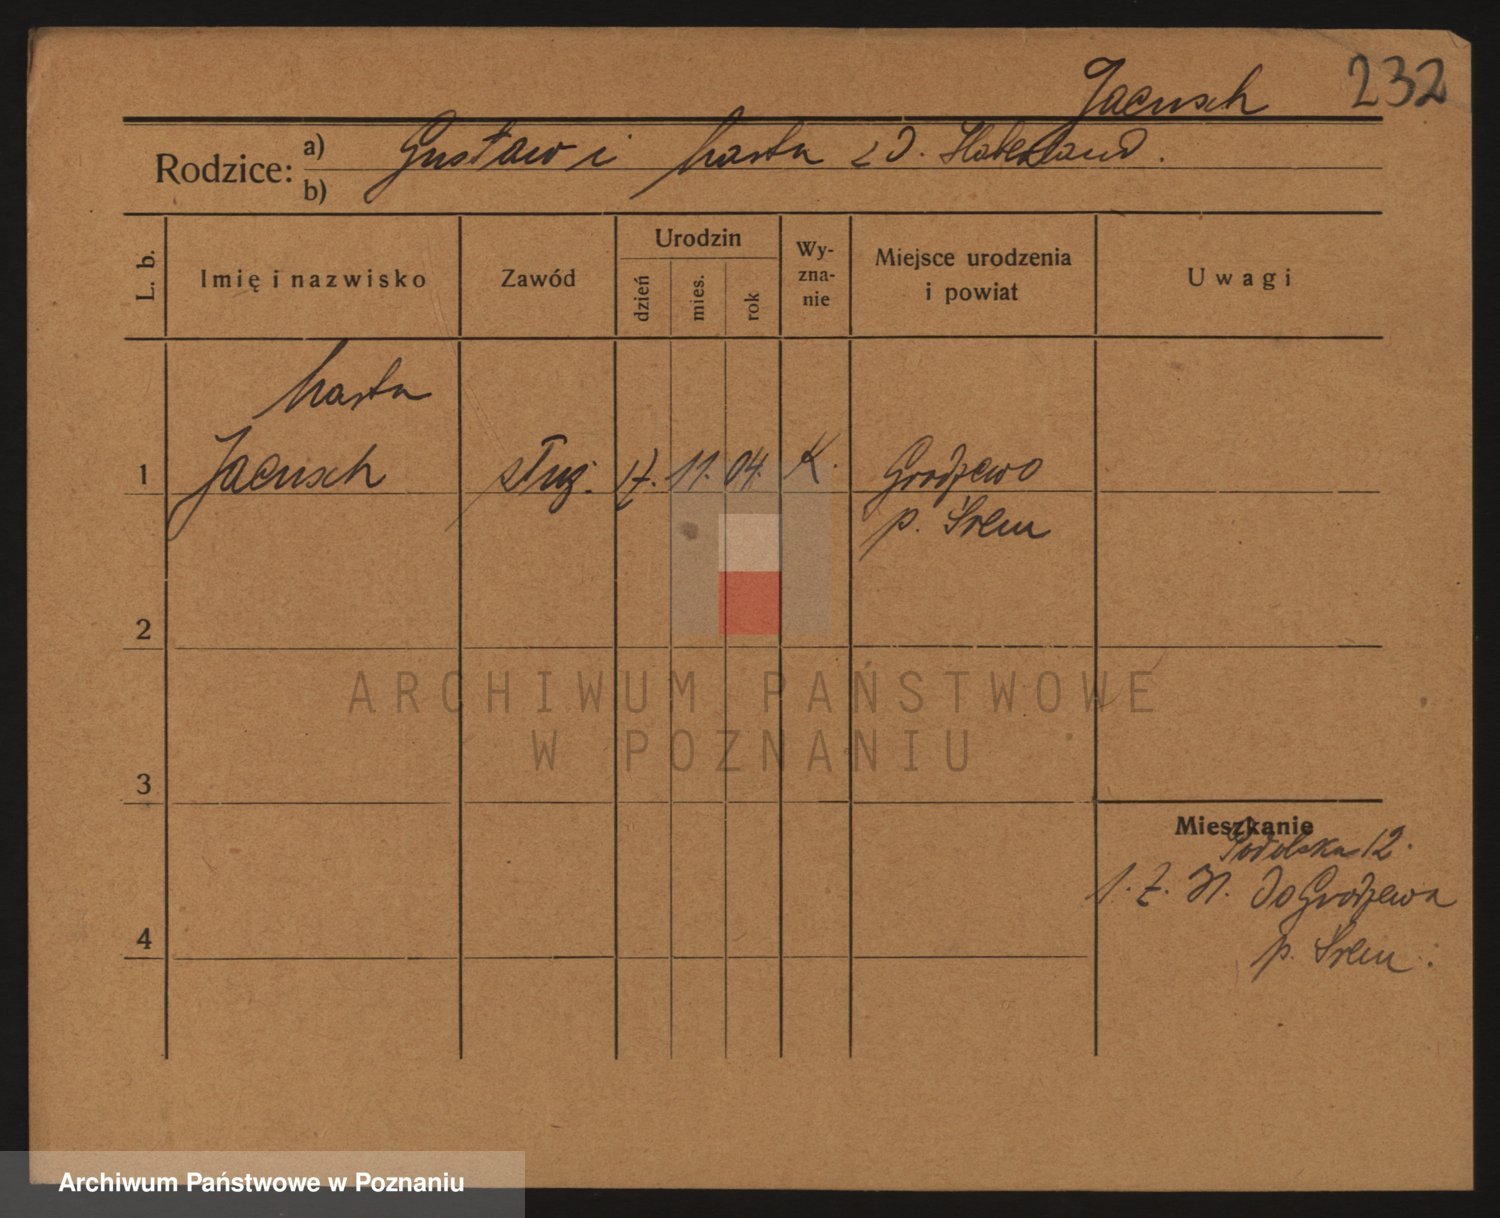 Jaeusch 232
Rodzice: a) Gustaw i Marta z d. Haberland.
b)
L. b. Imię i nazwisko Zawód Urodzin dzień mies. rok Wy-zna-nie Miejsce urodzenia i powiat Uwagi
Marta
1 Jaeusch służ. 17. 11. 04. K. Grodzewo
p. Śrem
2
3
4
Mieszkanie
Podolska 12.
1. Do Grodzewa
p. Śrem.
ARCHIWUM PAŃSTWOWE
W POZNANIU
Archiwum Państwowe w Poznaniu